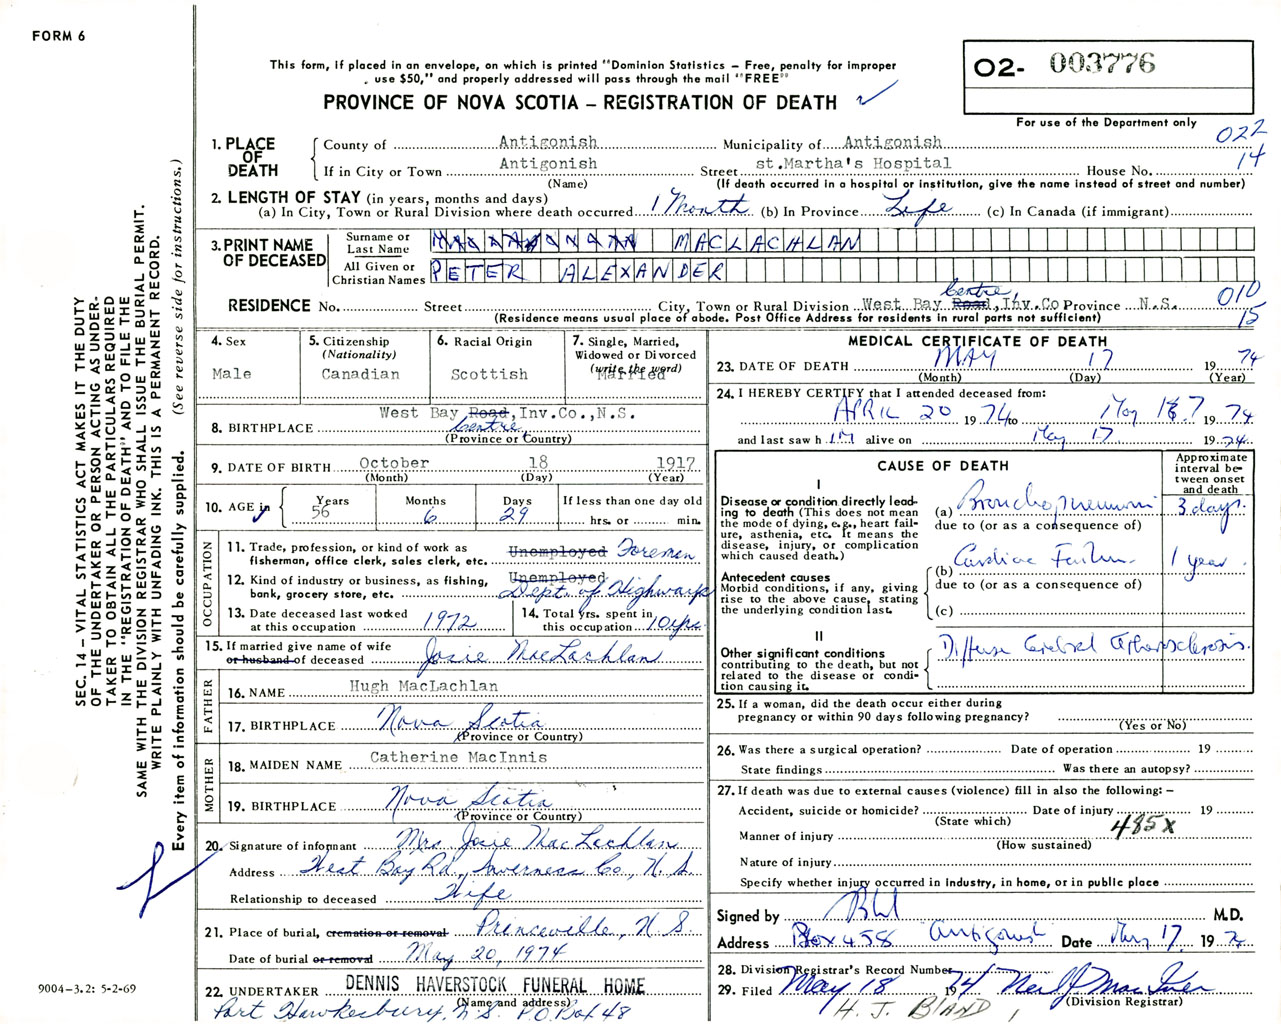 FORM 6
This form, If placed in an envelope, on which is printed "Dominion Statistics – Free, penalty for improper
use $50," and properly addressed will pass through the mail "FREE"
PROVINCE OF NOVA SCOTIA – REGISTRATION OF DEATH ✓
02- 003776
For use of the Department only
022
14
1. PLACE OF DEATH
County of Antigonish Municipality of Antigonish
If in City or Town Antigonish Street st.Martha's Hospital House No.
(Name) (If death occurred in a hospital or institution, give the name instead of street and number)
2. LENGTH OF STAY (in years, months and days)
(a) In City, Town or Rural Division where death occurred 1 Month (b) In Province Life (c) In Canada (if immigrant)
3. PRINT NAME OF DECEASED
Surname or Last Name MACLACHLAN
All Given or Christian Names PETER ALEXANDER
RESIDENCE No. Street City, Town or Rural Division West Bay Road Centre, Inv.Co Province N.S. 010
(Residence means usual place of abode. Post Office Address for residents in rural parts not sufficient) 15
4. Sex Male
5. Citizenship (Nationality) Canadian
6. Racial Origin Scottish
7. Single, Married, Widowed or Divorced (write the word) Married
West Bay Road,Inv.Co.,N.S.
8. BIRTHPLACE Centre
(Province or Country)
9. DATE OF BIRTH October 18 1917
(Month) (Day) (Year)
10. AGE in Years 56 Months 6 Days 29 If less than one day old hrs. or min.
OCCUPATION
11. Trade, profession, or kind of work as fisherman, office clerk, sales clerk, etc. Unemployed Foreman
12. Kind of industry or business, as fishing, bank, grocery store, etc. Unemployed Dept. of Highways
13. Date deceased last worked at this occupation 1972
14. Total yrs. spent in this occupation 10 yrs.
15. If married give name of wife or husband of deceased Josie MacLachlan
FATHER
16. NAME Hugh MacLachlan
17. BIRTHPLACE Nova Scotia
(Province or Country)
MOTHER
18. MAIDEN NAME Catherine MacInnis
19. BIRTHPLACE Nova Scotia
(Province or Country)
20. Signature of informant Mrs Josie MacLachlan
Address West Bay Rd., Inverness Co., N.S
Relationship to deceased Wife
21. Place of burial, cremation or removal Princeville, N.S.
Date of burial or removal May 20, 1974
22. UNDERTAKER DENNIS HAVERSTOCK FUNERAL HOME
(Name and address)
Port Hawkesbury, N.S. P.O. Box 48
MEDICAL CERTIFICATE OF DEATH
23. DATE OF DEATH MAY 17 1974
(Month) (Day) (Year)
24. I HEREBY CERTIFY that I attended deceased from:
APRIL 20 1974 to May 17 1974
and last saw h IM alive on May 17 1974
CAUSE OF DEATH
Approximate interval between onset and death
I
Disease or condition directly leading to death (This does not mean the mode of dying, e.g., heart failure, asthenia, etc. It means the disease, injury, or complication which caused death.)
(a) Bronchopneumonia 3 days.
due to (or as a consequence of)
Antecedent causes
Morbid conditions, if any, giving rise to the above cause, stating the underlying condition last.
(b) Cardiac Failure 1 year.
due to (or as a consequence of)
(c)
II
Other significant conditions contributing to the death, but not related to the disease or condition causing it.
Diffuse Cerebral Atherosclerosis.
25. If a woman, did the death occur either during pregnancy or within 90 days following pregnancy?
(Yes or No)
26. Was there a surgical operation? Date of operation 19
State findings Was there an autopsy?
27. If death was due to external causes (violence) fill in also the following: –
Accident, suicide or homicide? Date of injury 19
(State which) 485X
Manner of injury
(How sustained)
Nature of injury
Specify whether injury occurred in industry, in home, or in public place
Signed by M.D.
Address Box 458 Antigonish Date May 17 1974
28. Division Registrar's Record Number
29. Filed May 18 1974 Neil J MacIver
(Division Registrar)
H. J. BLAND
SEC. 14 – VITAL STATISTICS ACT MAKES IT THE DUTY
OF THE UNDERTAKER OR PERSON ACTING AS UNDER-
TAKER TO OBTAIN ALL THE PARTICULARS REQUIRED
IN THE "REGISTRATION OF DEATH" AND TO FILE THE
SAME WITH THE DIVISION REGISTRAR WHO SHALL ISSUE THE BURIAL PERMIT.
WRITE PLAINLY WITH UNFADING INK. THIS IS A PERMANENT RECORD.
Every item of information should be carefully supplied. (See reverse side for instructions.)
9004-3.2: 5-2-69